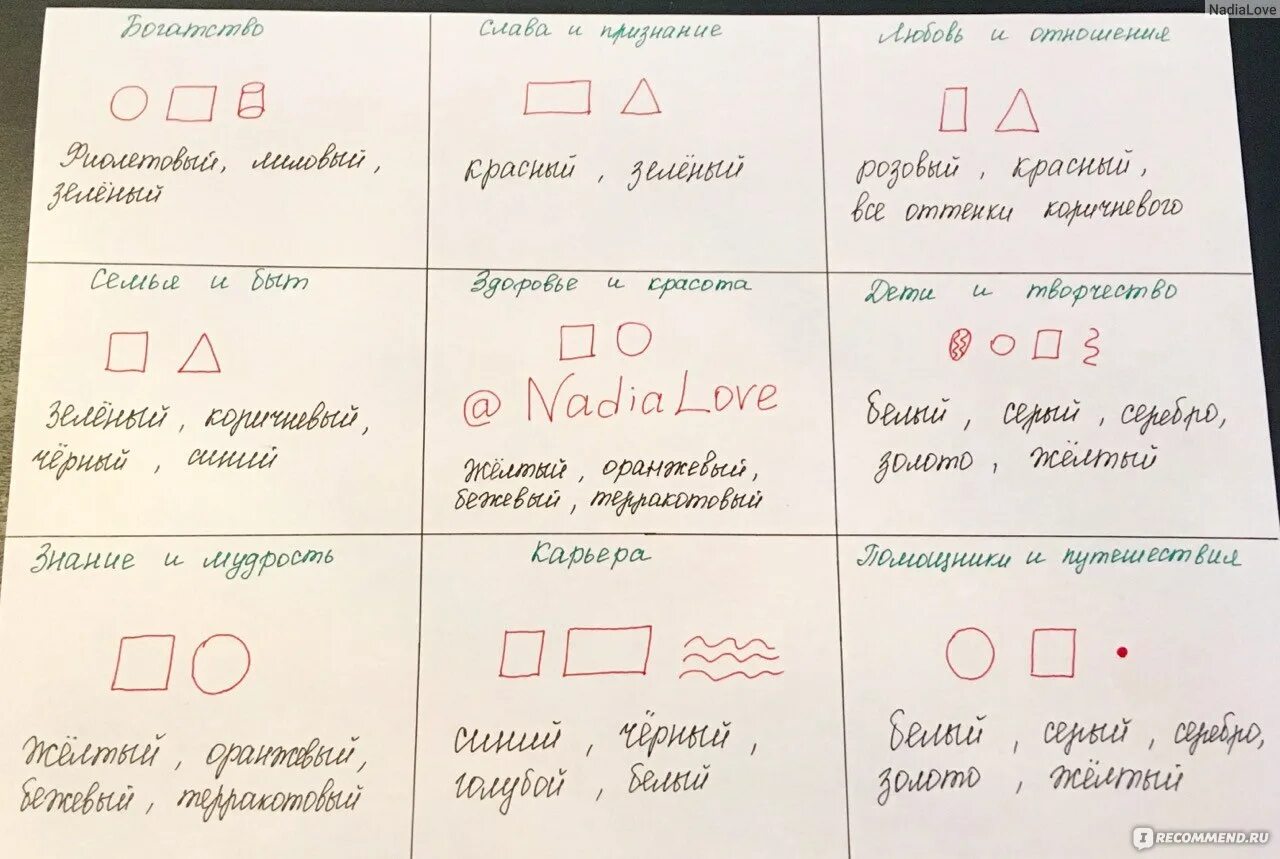 NadiaLove
Богатство
Фиолетовый, лиловый,
зелёный
Слава и признание
красный, зелёный
Любовь и отношения
розовый, красный,
все оттенки коричневого
Семья и быт
зелёный, коричневый,
чёрный, синий
Здоровье и красота
@ NadiaLove
жёлтый, оранжевый,
бежевый, терракотовый
Дети и творчество
белый, серый, серебро,
золото, жёлтый
Знание и мудрость
жёлтый, оранжевый,
бежевый, терракотовый
Карьера
синий, чёрный,
голубой, белый
Помощники и путешествия
белый, серый, серебро,
золото, жёлтый
I RECOMMEND.RU